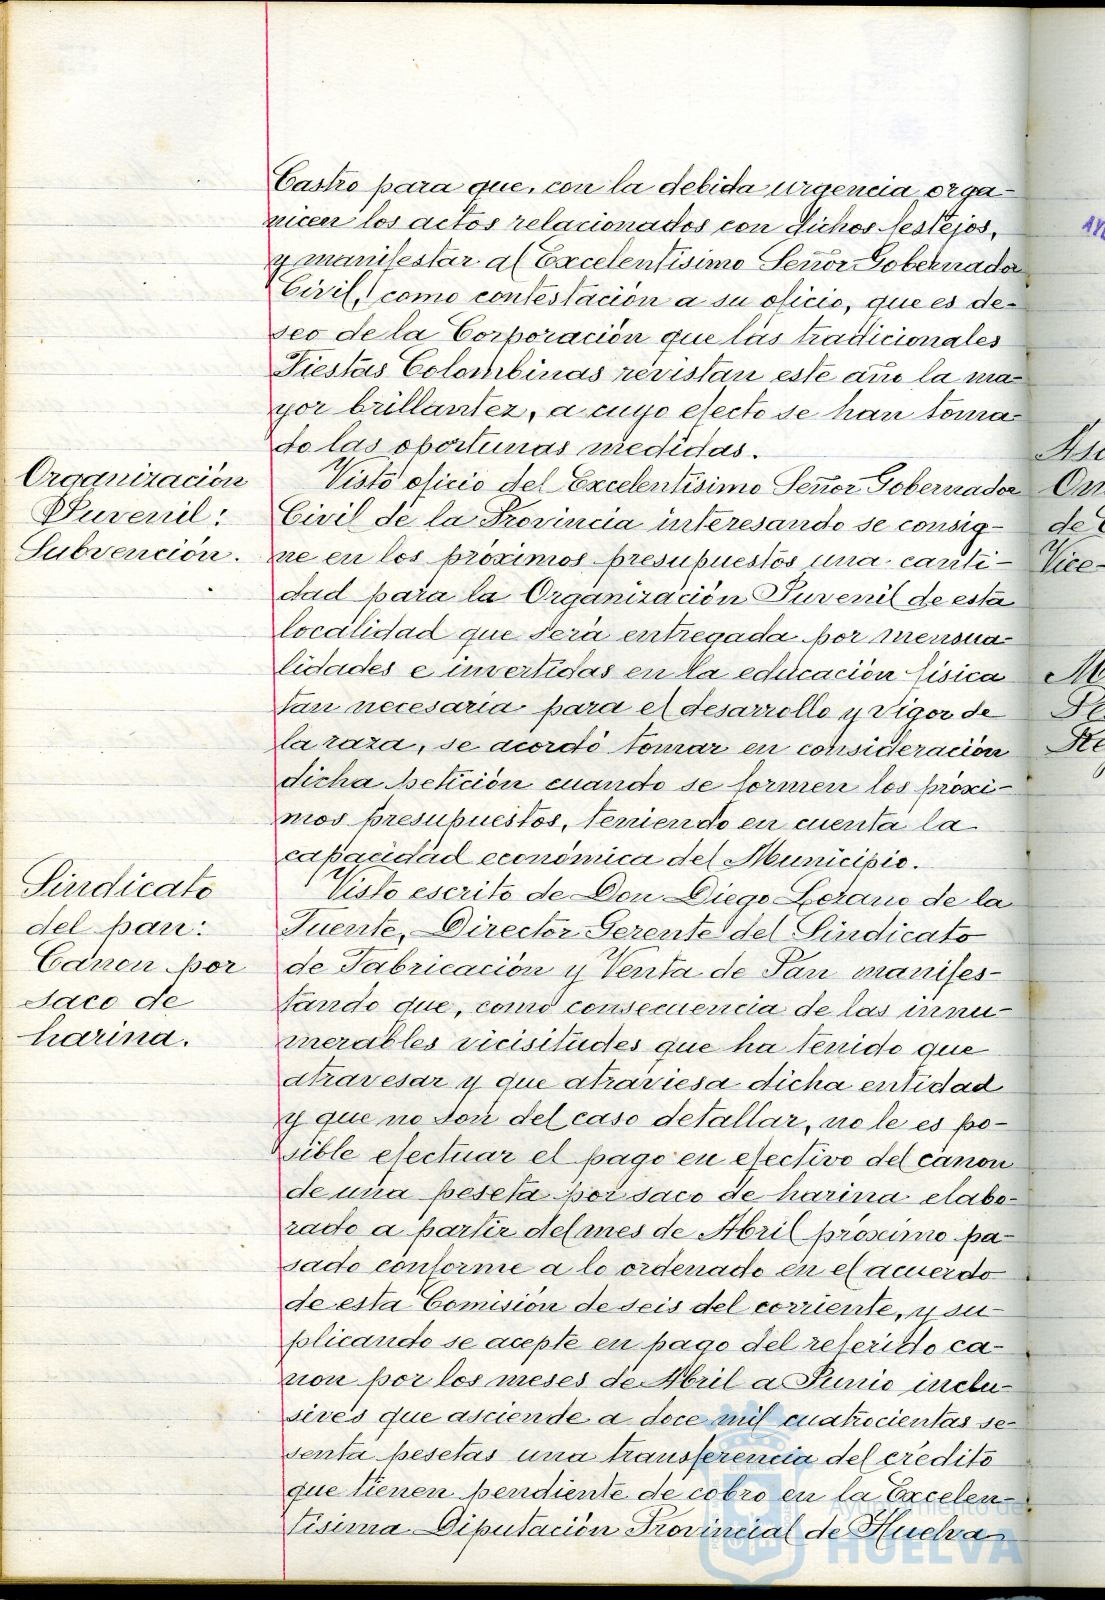 Castro para que, con la debida urgencia orga-
nicen los actos relacionados con dichos festejos,
y manifestar al Excelentísimo Señor Gobernador
Civil, como contestación a su oficio, que es de-
seo de la Corporación que las tradicionales
Fiestas Colombinas revistan este año la ma-
yor brillantez, a cuyo efecto se han toma-
do las oportunas medidas.
Organización
Juvenil:
Subvención.
Visto oficio del Excelentísimo Señor Gobernador
Civil de la Provincia interesando se consig-
ne en los próximos presupuestos una canti-
dad para la Organización Juvenil de esta
localidad que será entregada por mensua-
lidades e invertidas en la educación física
tan necesaria para el desarrollo y vigor de
la raza, se acordó tomar en consideración
dicha petición cuando se formen los próxi-
mos presupuestos, teniendo en cuenta la
capacidad económica del Municipio.
Sindicato
del pan:
Canon por
saco de
harina.
Visto escrito de Don Diego Lozano de la
Fuente, Director Gerente del Sindicato
de Fabricación y Venta de Pan manifes-
tando que, como consecuencia de las innu-
merables vicisitudes que ha tenido que
atravesar y que atraviesa dicha entidad
y que no son del caso detallar, no le es po-
sible efectuar el pago en efectivo del canon
de una peseta por saco de harina elabo-
rado a partir del mes de Abril próximo pa-
sado conforme a lo ordenado en el acuerdo
de esta Comisión de seis del corriente, y su-
plicando se acepte en pago del referido ca-
non por los meses de Abril a Junio inclu-
sives que asciende a doce mil cuatrocientas se-
senta pesetas una transferencia del crédito
que tienen pendiente de cobro en la Excelen-
tísima Diputación Provincial de Huelva
Ayuntamiento de
HUELVA
de
Vice-